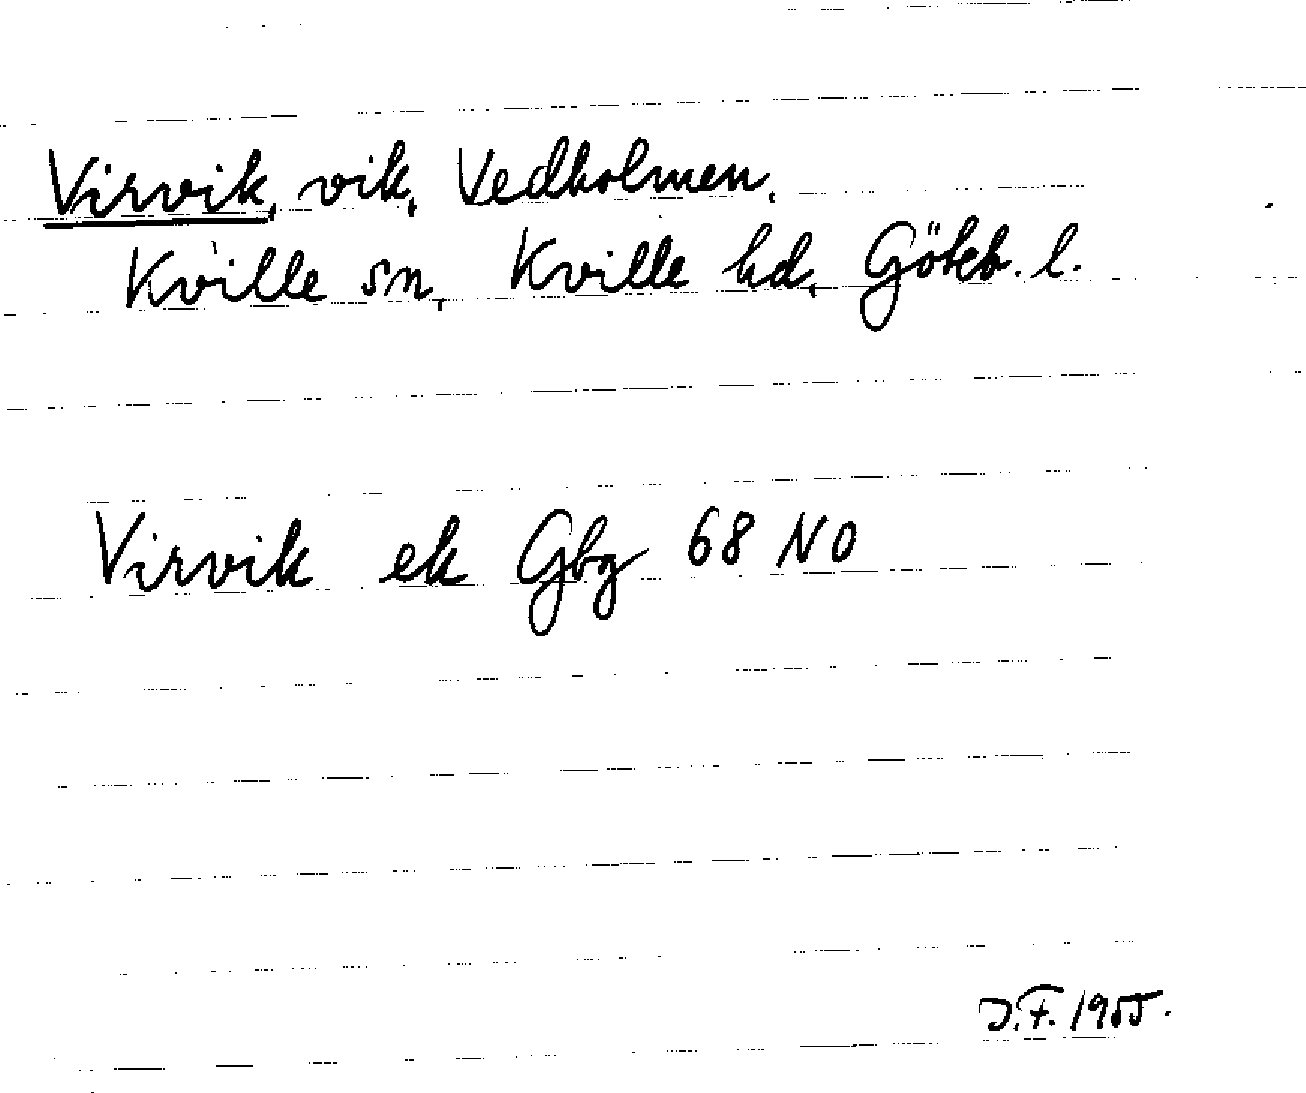 Virvik, vik, Vedholmen,
Kville sn, Kville hd, Göteb. l.
Virvik ek Gbg 68 NO
J.F. 1955.